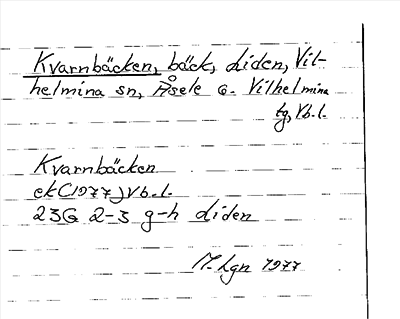 Kvarnbäcken, bäck, Liden, Vil-
helmina sn, Åsele o. Vilhelmina
tg, Vb.l.
Kvarnbäcken
ek (1977) Vb.l.
23G 2-3 g-h Liden
M. Lgn 1977